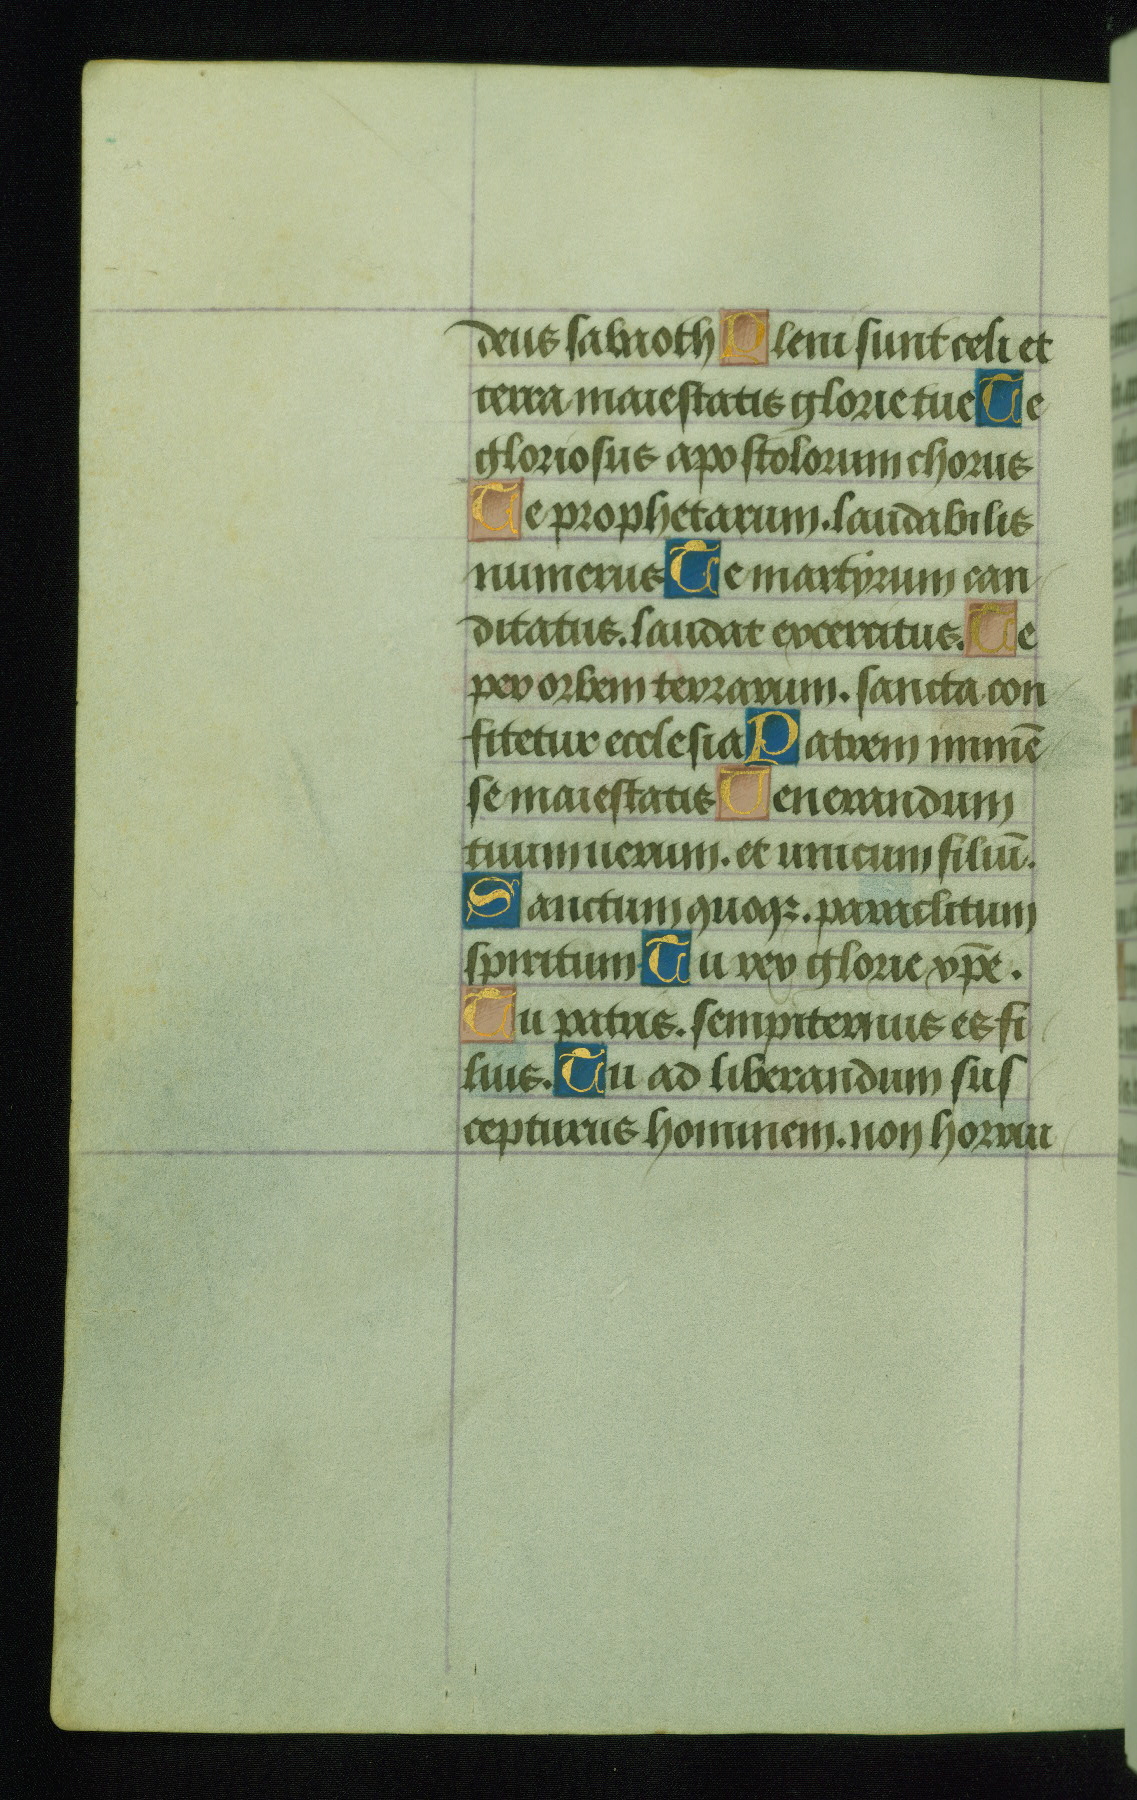 deus sabaoth Pleni sunt celi et
terra maiestatis glorie tue Te
gloriosus apostolorum chorus
Te prophetarum. laudabilis
numerus Te martyrum can
ditatus. laudat excercitus. Te
per orbem terrarum. sancta con
fitetur ecclesia Patrem inmē
se maiestatis Uenerandum
tuum uerum. et unicum filiū.
Sanctum quoqꝫ. paraclitum
spiritum Tu rex glorie xp̄e.
Tu patris. sempiternus es fi
lius. Tu ad liberandum sus
cepturus hominem. non horrui